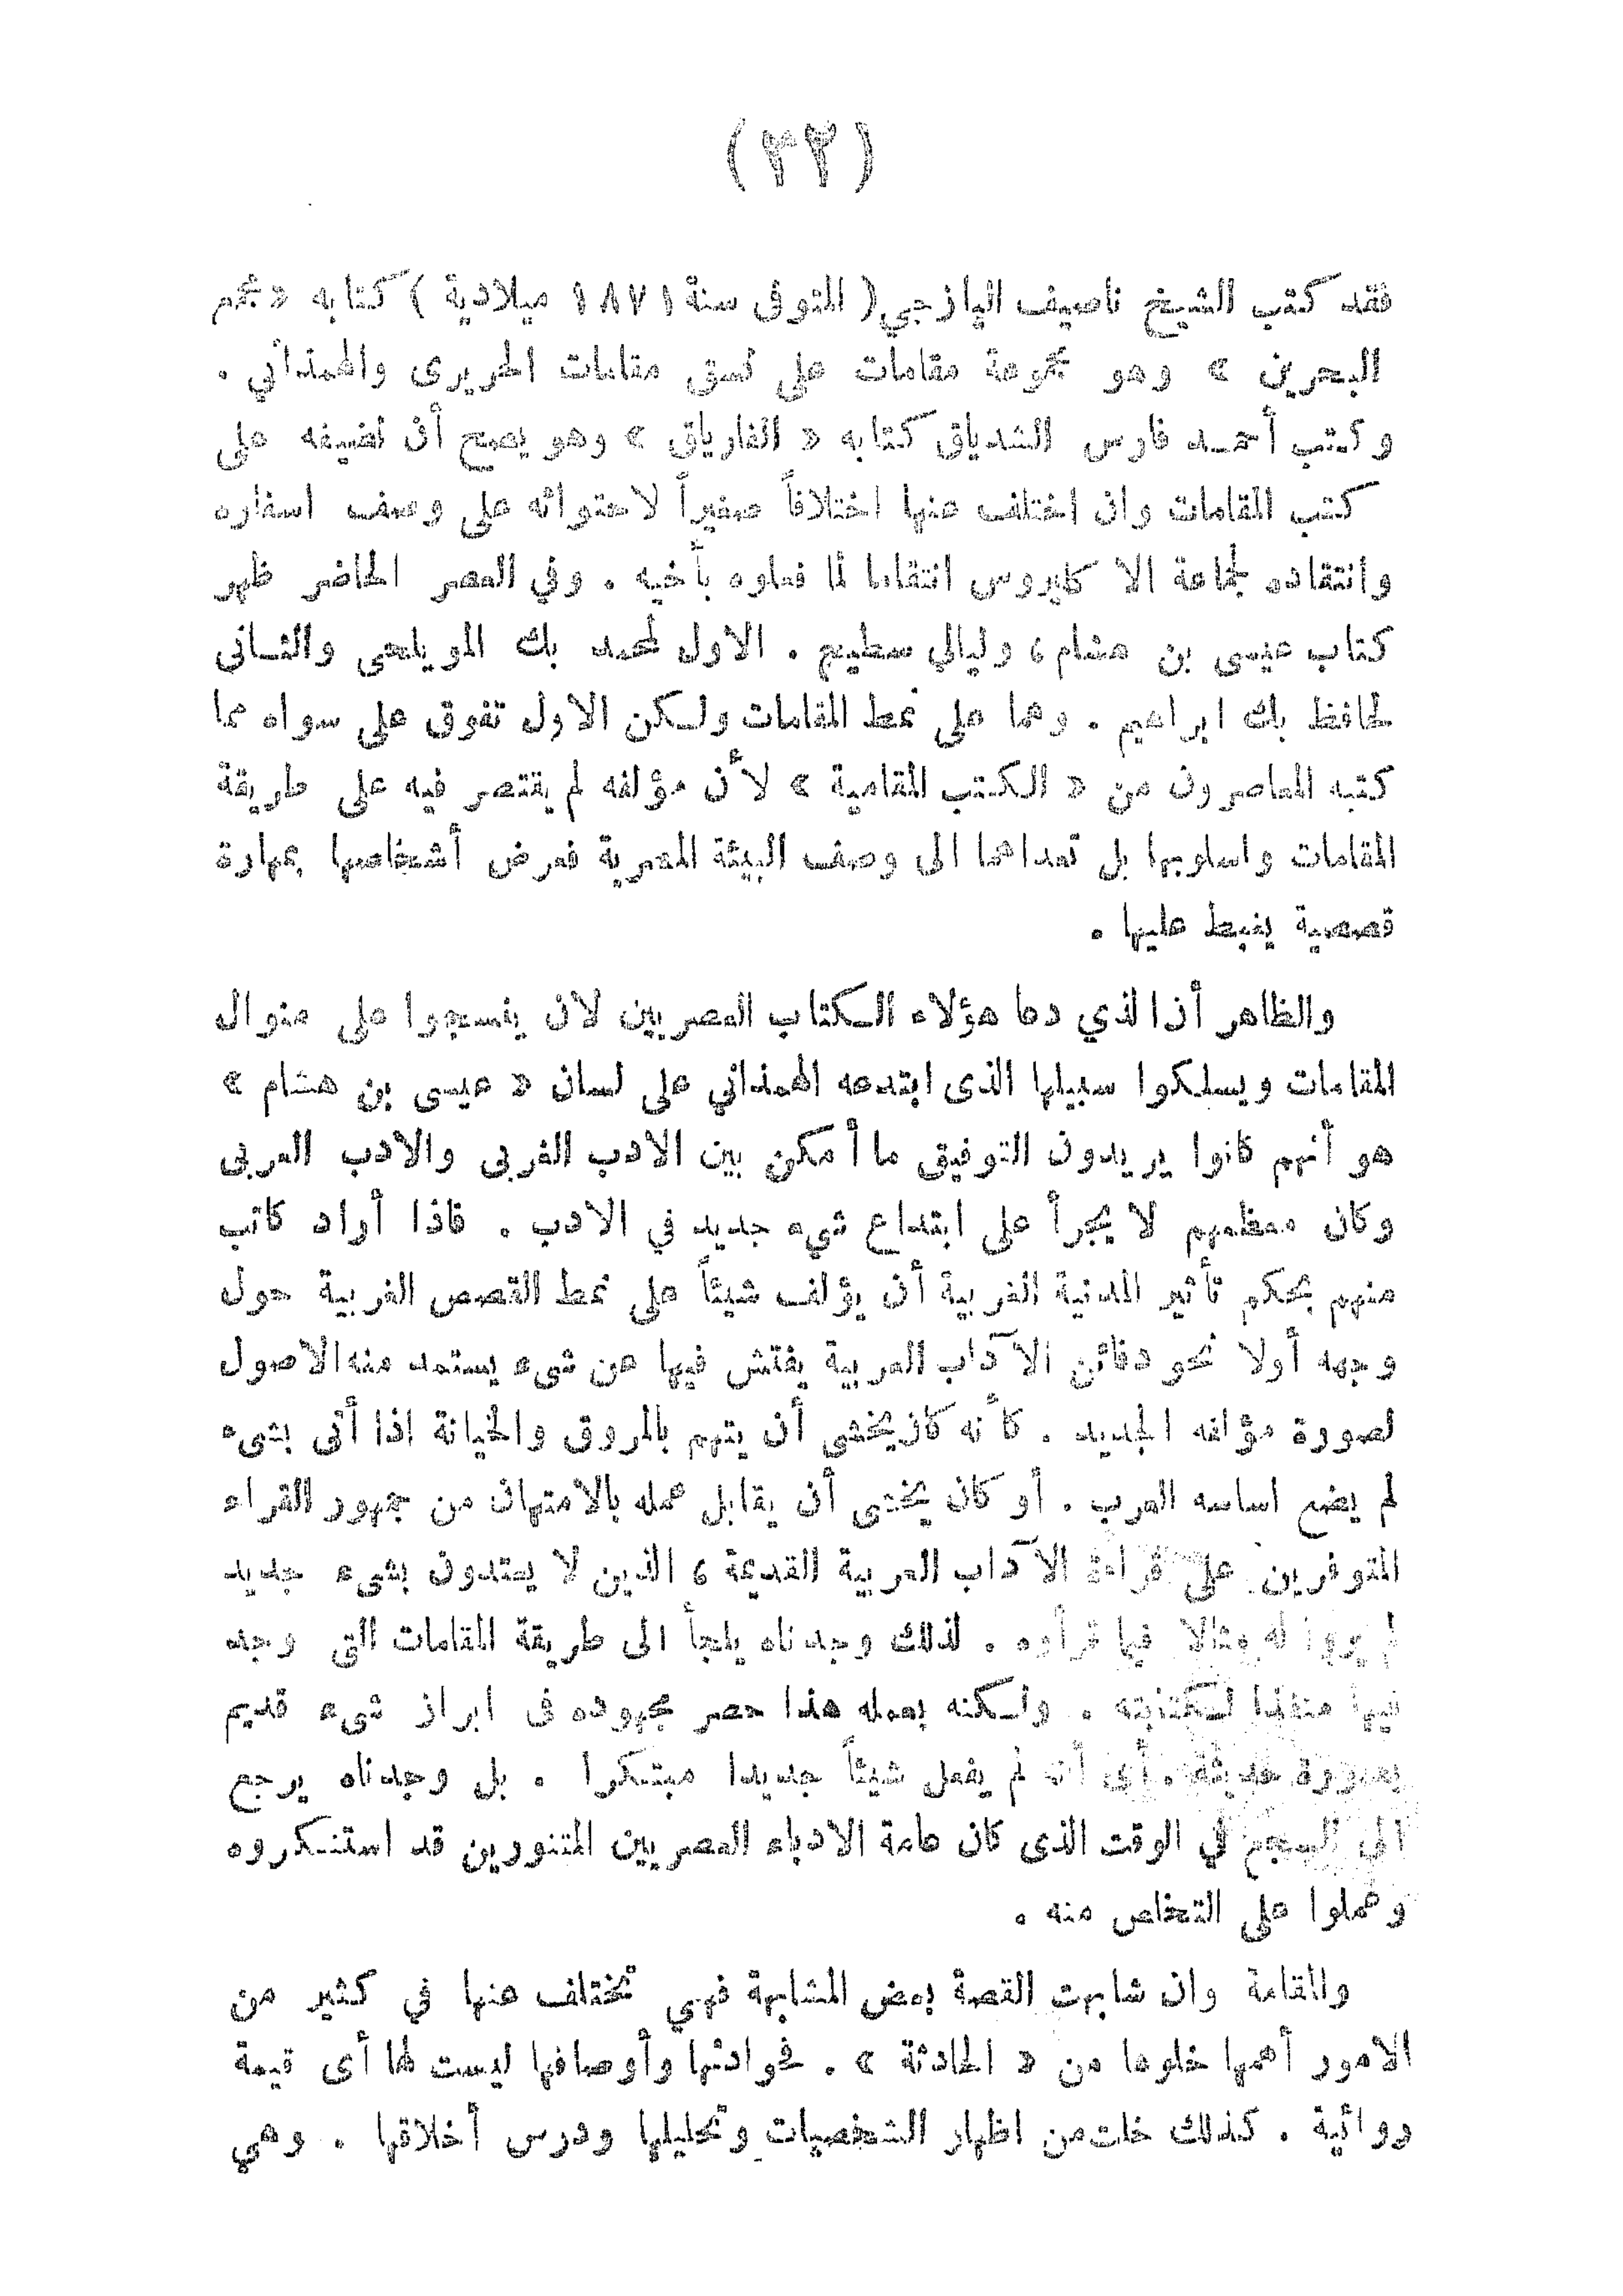 (٣٢)
فقد كتب الشيخ ناصيف اليازجي ( المتوفى سنة ١٨٧١ ميلادية ) كتابه « مجمع
البحرين » وهو مجموعة مقامات على نسق مقامات الحريرى والهمذاني .
وكتب أحمد فارس الشدياق كتابه « الفارياق » وهو يصح أن نضيفه على
كتب المقامات وان اختلف عنها اختلافاً صغيراً لاحتوائه على وصف اسفاره
وانتقاده لجماعة الاكليروس انتقاما لما فعلوه بأخيه . وفي العصر الحاضر ظهر
كتاب عيسى بن هشام ، وليالي سطيح . الاول لمحمد بك المويلحى والثانى
لحافظ بك ابراهيم . وهما على نمط المقامات ولكن الاول تفوق على سواه مما
كتبه المعاصرون من « الكتب المقامية » لأن مؤلفه لم يقتصر فيه على طريقة
المقامات واسلوبها بل تعداهما الى وصف البيئة المصرية فعرض أشخاصها بمهارة
قصصية يغبط عليها .
والظاهر أن الذي دعا هؤلاء الكتاب العصريين لان ينسجوا على منوال
المقامات ويسلكوا سبيلها الذى ابتدعه الهمذاني على لسان « عيسى بن هشام »
هو أنهم كانوا يريدون التوفيق ما أمكن بين الادب الغربى والادب العربى
وكان معظمهم لا يجرأ على ابتداع شيء جديد في الادب . فاذا أراد كاتب
منهم بحكم تأثير المدنية الغربية أن يؤلف شيئاً على نمط القصص الغربية حول
وجهه أولا نحو دفائن الآداب العربية يفتش فيها عن شىء يستمد منه الاصول
لصورة مؤلفه الجديد . كأنه كان يخشى أن يتهم بالمروق والخيانة اذا أتى بشىء
لم يضع اساسه العرب . أو كان يخشى أن يقابل عمله بالامتهان من جمهور القراء
المتوفرين على قراءة الآداب العربية القديمة ، الذين لا يعتدون بشىء جديد
لم يروا له مثالا فيما قرأوه . لذلك وجدناه يلجأ الى طريقة المقامات التى وجد
فيها منفذا لكتابته . ولكنه بعمله هذا حصر مجهوده فى ابراز شىء قديم
بصورة حديثة . أى أنه لم يفعل شيئاً جديدا مبتكرا . بل وجدناه يرجع
الى السجع في الوقت الذى كان عامة الادباء العصريين المتنورين قد استنكروه
وعملوا على التخلص منه .
والمقامة وان شابهت القصة بعض المشابهة فهي تختلف عنها في كثير من
الامور أهمها خلوها من « الحادثة » . فحوادثها وأوصافها ليست لها أى قيمة
روائية . كذلك خلت من اظهار الشخصيات وتحليلها ودرس أخلاقها . وهي